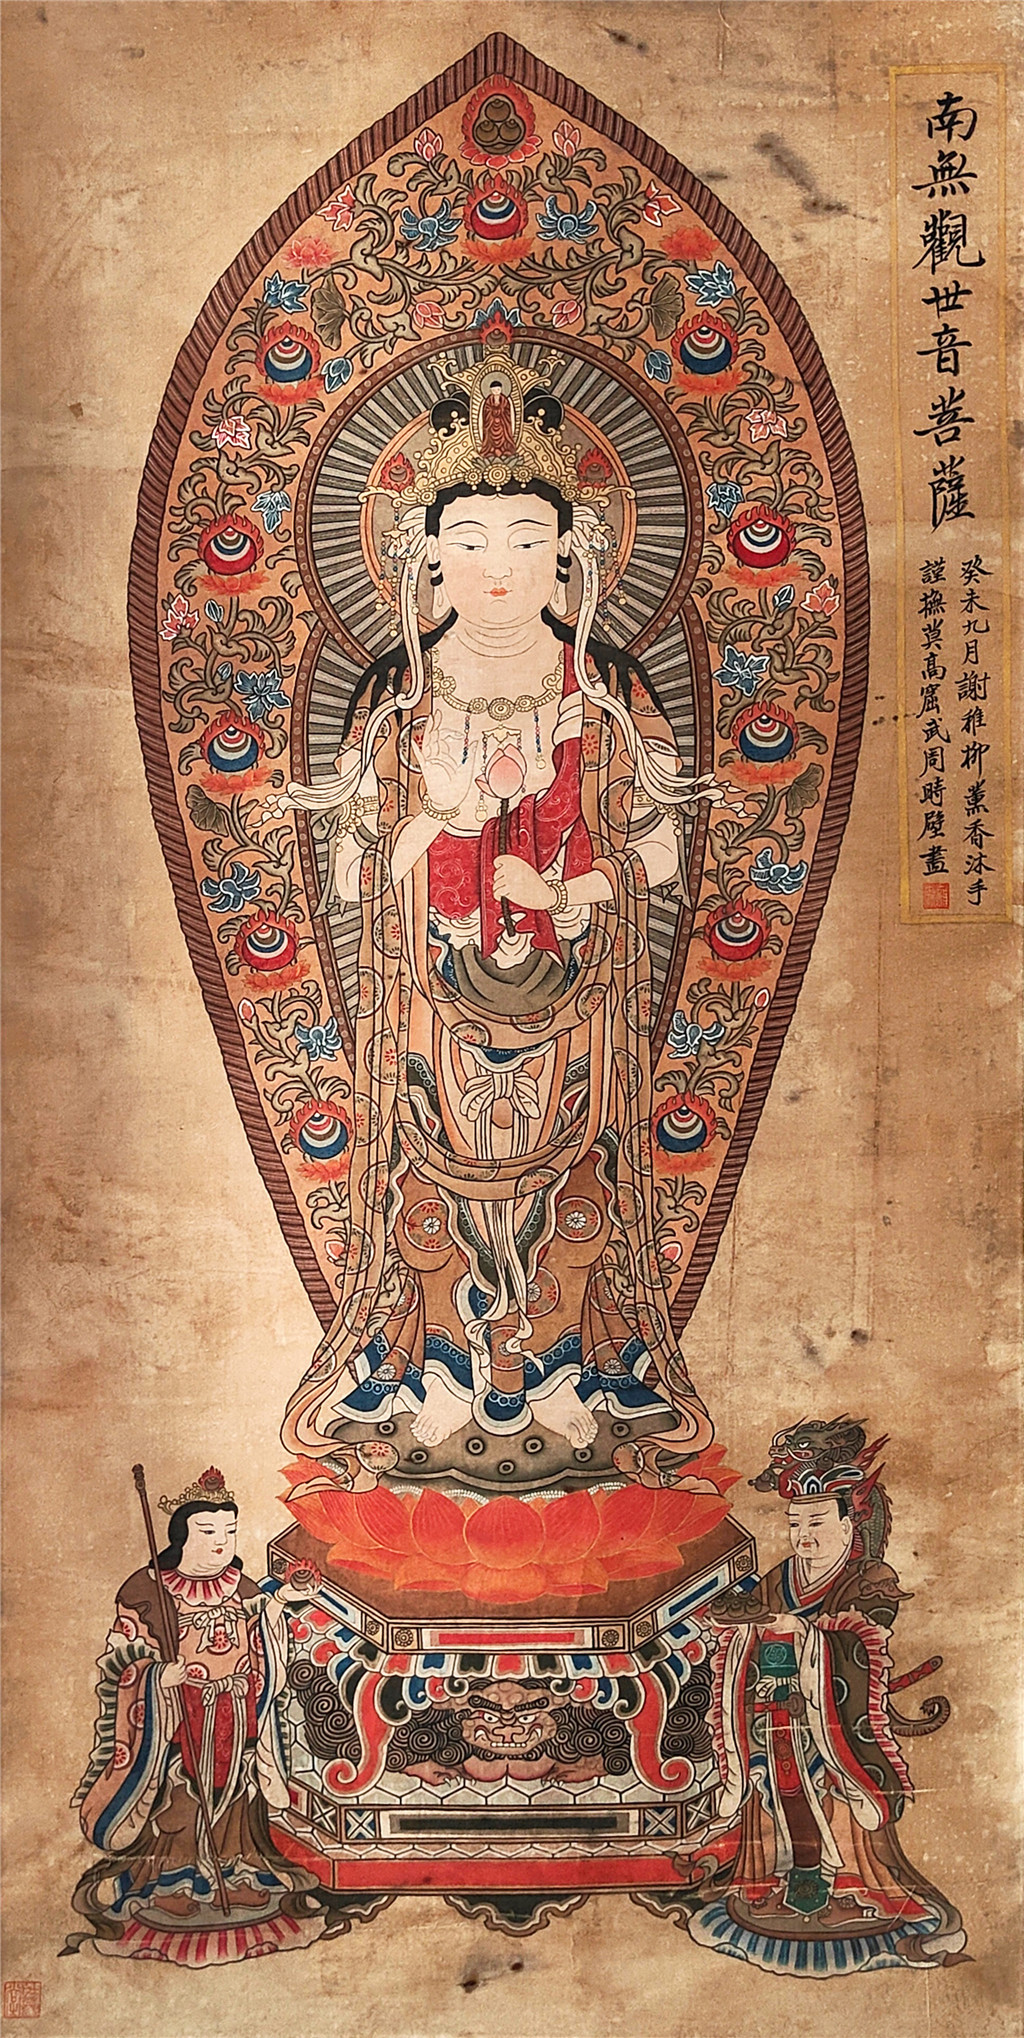 南無觀世音菩薩
癸未九月謝稚柳薰香沐手
謹撫莫高窟武周時壁畫